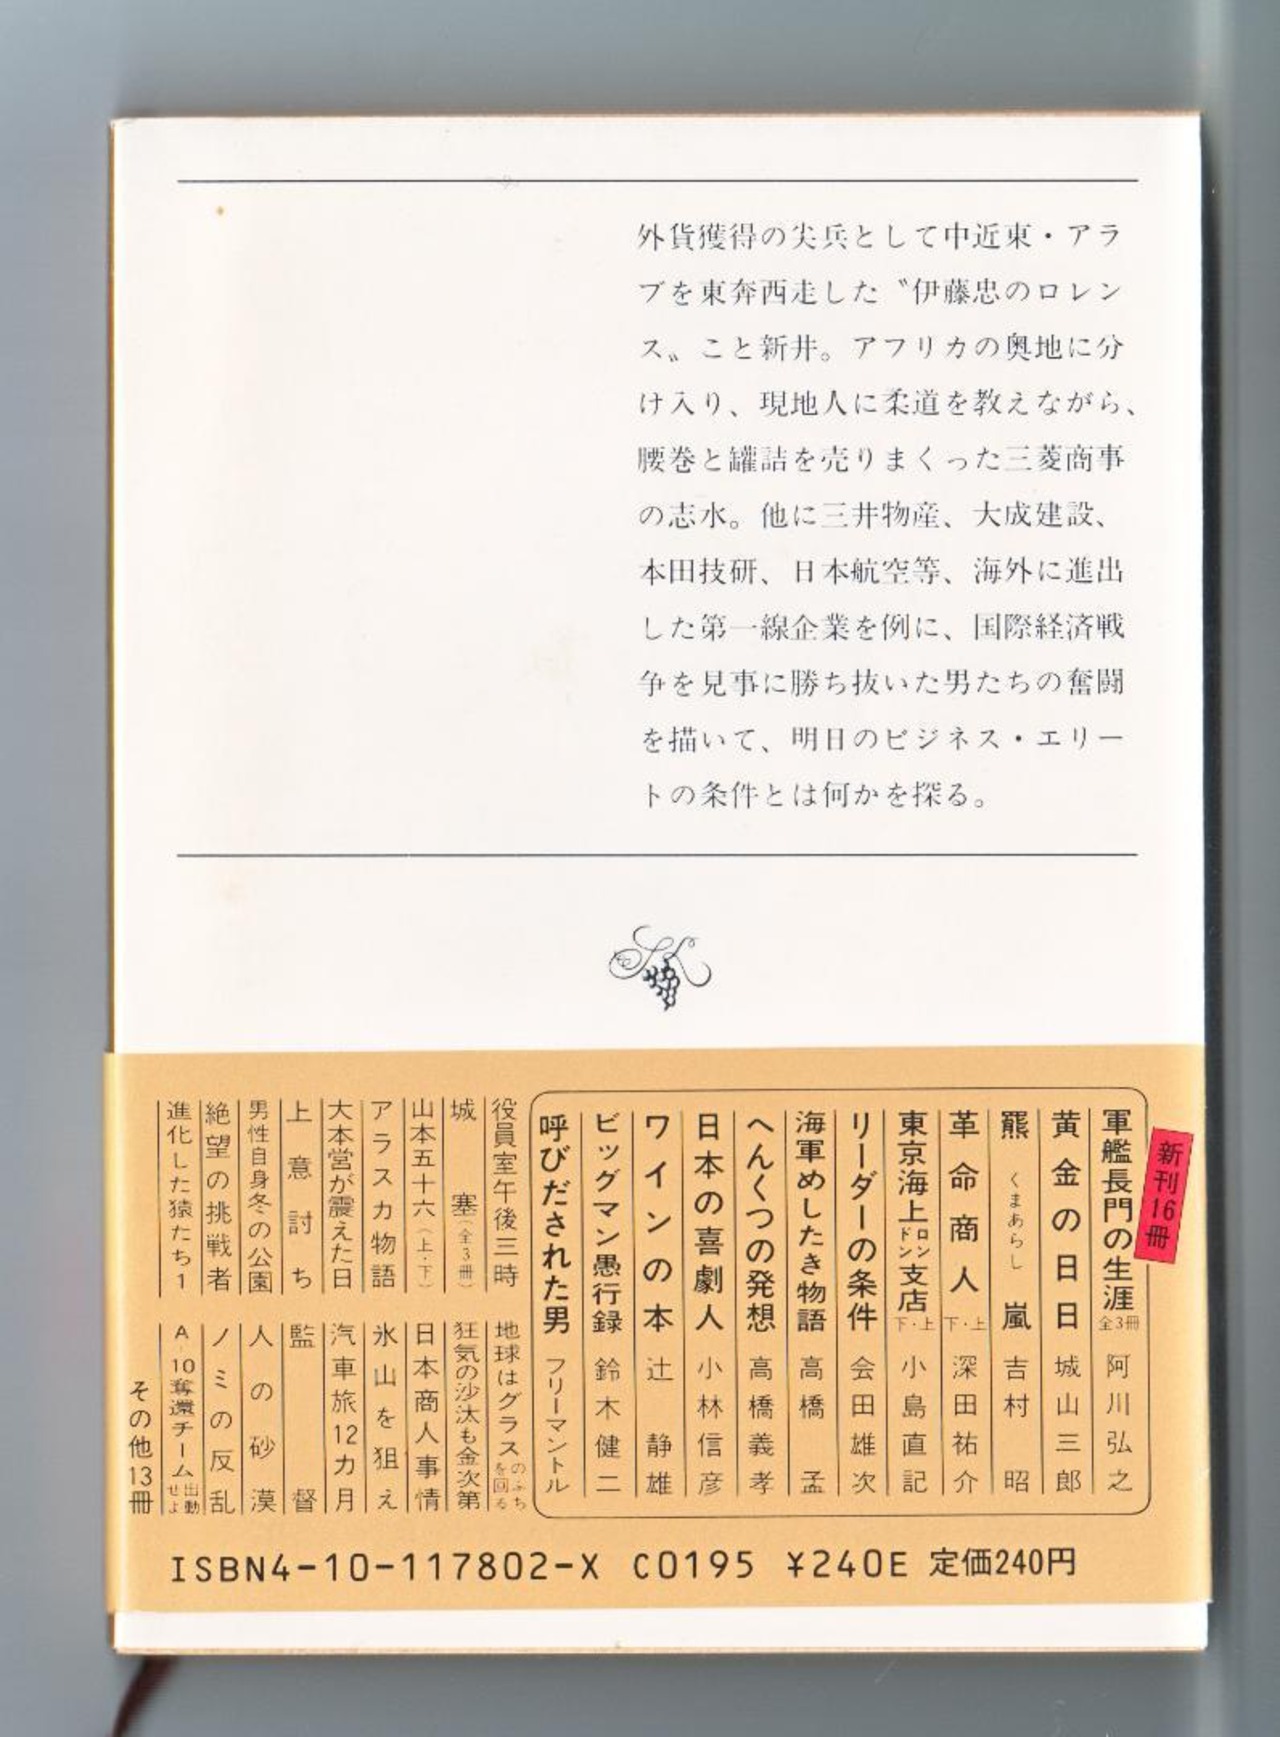 外貨獲得の尖兵として中近東・アラ
ブを東奔西走した〝伊藤忠のロレン
ス〟こと新井。アフリカの奥地に分
け入り、現地人に柔道を教えながら、
腰巻と罐詰を売りまくった三菱商事
の志水。他に三井物産、大成建設、
本田技研、日本航空等、海外に進出
した第一線企業を例に、国際経済戦
争を見事に勝ち抜いた男たちの奮闘
を描いて、明日のビジネス・エリー
トの条件とは何かを探る。
新刊16冊
軍艦長門の生涯 全3冊 阿川弘之
黄金の日日 城山三郎
羆嵐 くまあらし 吉村昭
革命商人 上・下 深田祐介
東京海上ロンドン支店 上・下 小島直記
リーダーの条件 会田雄次
海軍めしたき物語 高橋孟
へんくつの発想 高橋義孝
日本の喜劇人 小林信彦
ワインの本 辻静雄
ビッグマン愚行録 鈴木健二
呼びだされた男 フリーマントル
役員室午後三時
城塞(全3冊)
山本五十六(上・下)
アラスカ物語
大本営が震えた日
上意討ち
男性自身冬の公園
絶望の挑戦者
進化した猿たち1
地球はグラスのふちを回る
狂気の沙汰も金次第
日本商人事情
氷山を狙え
汽車旅12カ月
監督
人の砂漠
ノミの反乱
A-10奪還チーム出動せよ
その他13冊
ISBN4-10-117802-X C0195 ¥240E 定価240円